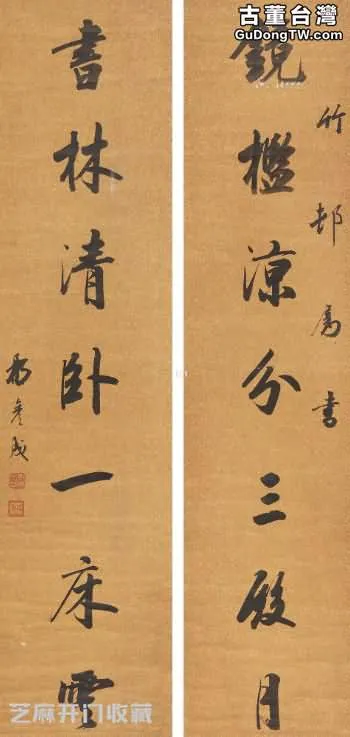 古董台灣
GuDongTW.com
竹邨属書
鏡檻涼分三殿月
書林清卧一床雪
芝麻开门收藏